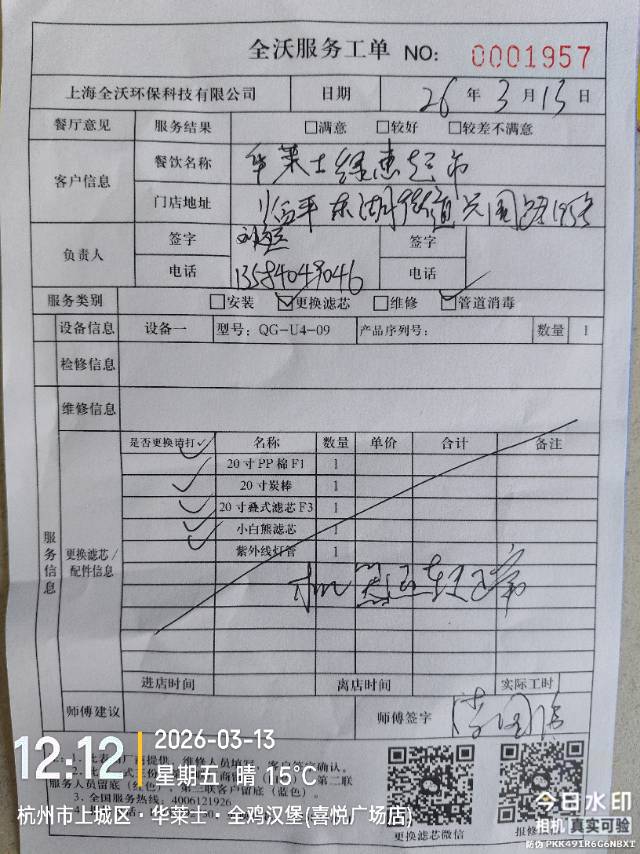 全沃服务工单 NO: 0001957
上海全沃环保科技有限公司 日期 26 年 3 月 13 日
餐厅意见 服务结果 □满意 □较好 □较差不满意
客户信息 餐饮名称 华莱士
门店地址 临平东湖街道
负责人 签字 签字
电话 13584049046 电话
服务类别 □安装 ☑更换滤芯 □维修 ☑管道消毒
设备信息 设备一 型号: QG-U4-09 产品序列号: 数量 1
检修信息
维修信息
服务信息
更换滤芯/配件信息
是否更换请打✓ 名称 数量 单价 合计 备注
✓ 20寸PP棉F1 1
✓ 20寸炭棒 1
✓ 20寸叠式滤芯F3 1
✓ 小白熊滤芯 1
✓ 紫外线灯管 1
进店时间 离店时间 实际工时
师傅建议 师傅签字
服务人员留底（红色）、第三联客户留底（蓝色）。
3、全国服务热线: 4006121926
更换滤芯微信
12:12 2026-03-13
星期五 晴 15°C
杭州市上城区·华莱士·全鸡汉堡(喜悦广场店)
今日水印
相机 真实可验
防伪 PKK491R6G6NBXT